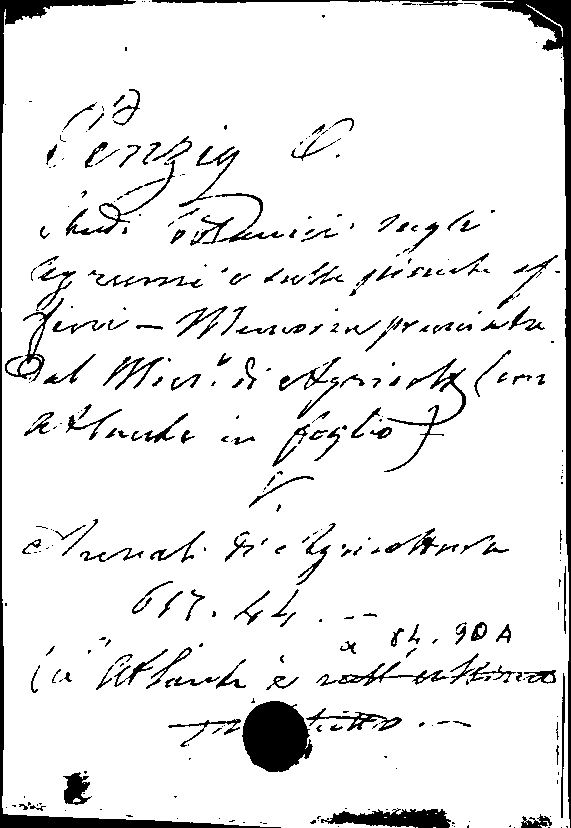 Penzig O.
Studi botanici sugli
agrumi e sulle piante af-
fini — Memoria premiata
dal Min.º di Agricolt. (con
atlante in foglio)
V.
Annali di Agricoltura
617.44. —
a 84.90A
(L' Atlante è nell'ultimo